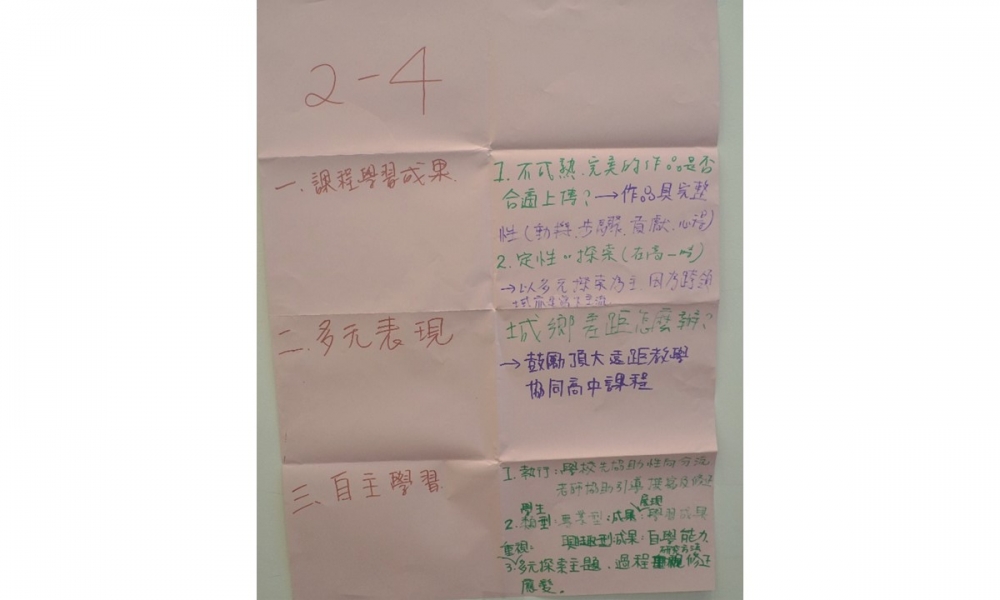 2-4
一、課程學習成果
1. 不成熟、完美的作品是否
合適上傳？→作品具完整
性(動機、步驟、貢獻、心得)
2. 定性vs探索(在高一時)
→以多元探索為主,因為跨領
二、多元表現
城鄉差距怎麼辦?
→鼓勵頂大遠距教學
協同高中課程
三、自主學習
1. 教行：學校先協助性向分流
老師協助引導 撰寫及修正
學生 展現
2. 類型：專業型：成果：學習成果
興趣型成果：自學能力
重視： 研究方法
3. 多元探索主題、過程 修正
應變。